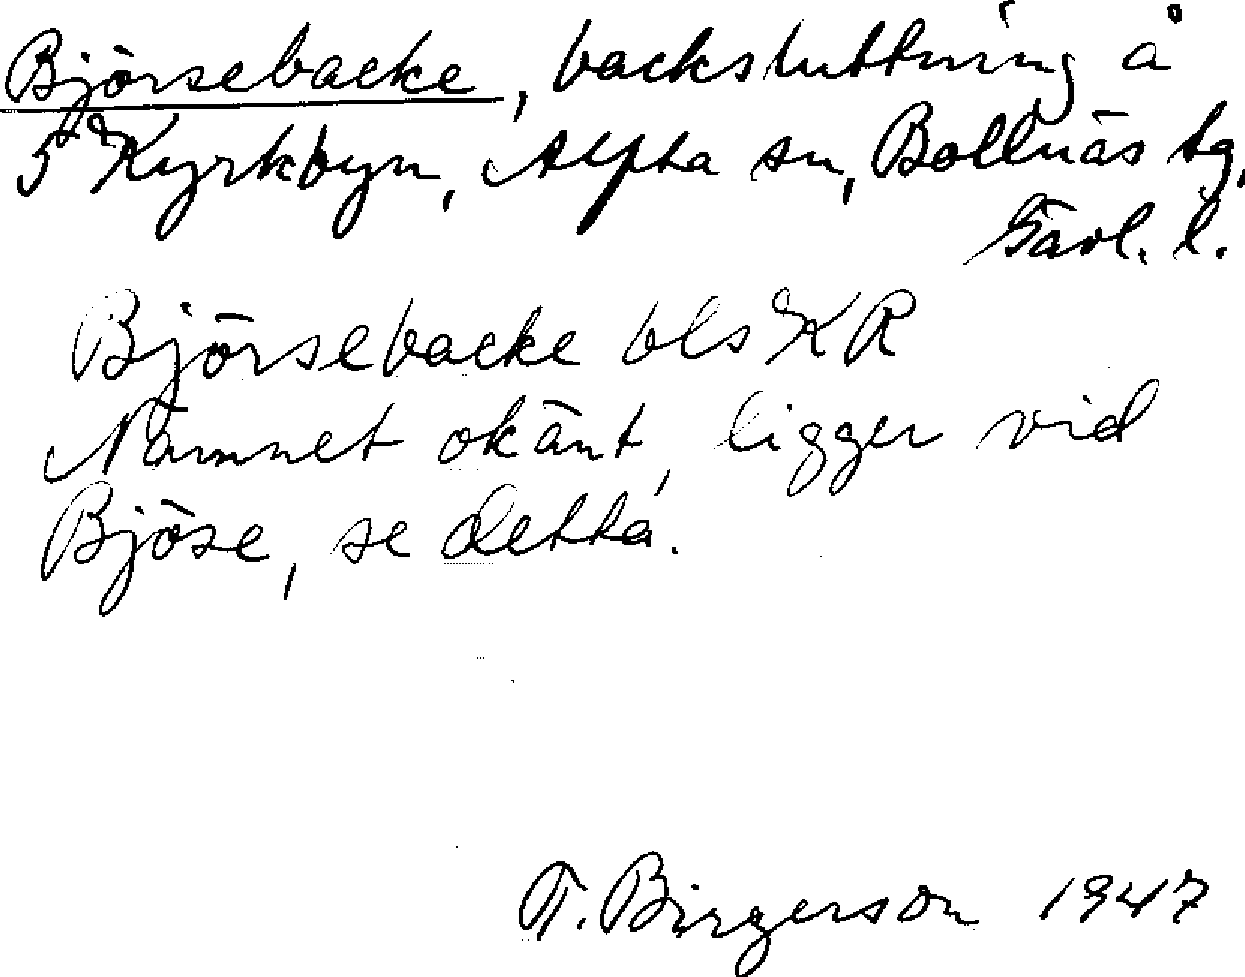 Björsebacke, backsluttning å
5 Kyrkbyn, Alfta sn, Bollnäs tg,
Gävl. l.
Björsebacke bls KR
Namnet okänt, ligger vid
Björse, se detta.
T. Birgerson 1947